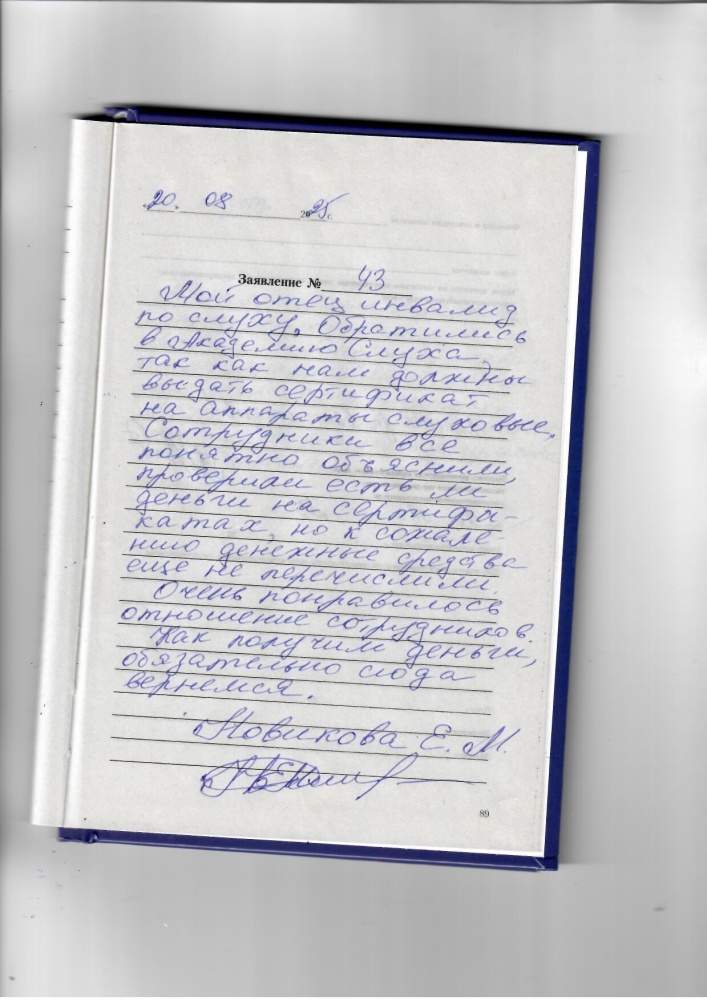 20. 08 2025г.
Заявление № 43
Мой отец инвалид
по слуху. Обратились
в Академию Слуха,
так как нам должны
выдать сертификат
на аппараты слуховые.
Сотрудники все
понятно объяснили,
проверили есть ли
деньги на сертифи-
катах, но к сожале-
нию денежные средства
еще не перечислили.
Очень понравилось
отношение сотрудников.
Как получим деньги,
обязательно сюда
вернемся.
Новикова Е. М.
89